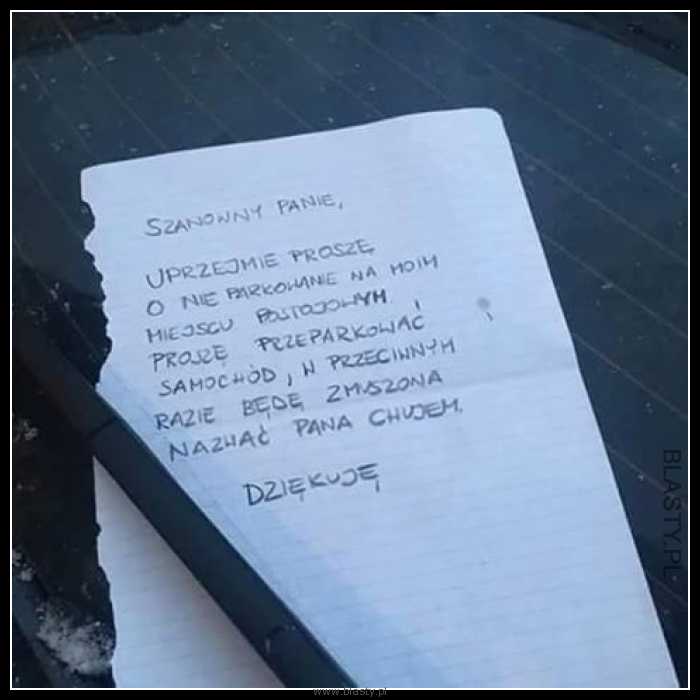 SZANOWNY PANIE,
UPRZEJMIE PROSZĘ
O NIE PARKOWANIE NA MOIM
MIEJSCU POSTOJOWYM I
PROSZĘ PRZEPARKOWAĆ
SAMOCHÓD, W PRZECIWNYM
RAZIE BĘDĘ ZMUSZONA
NAZWAĆ PANA CHUJEM.
DZIĘKUJĘ
BLASTY.PL
www.blasty.pl